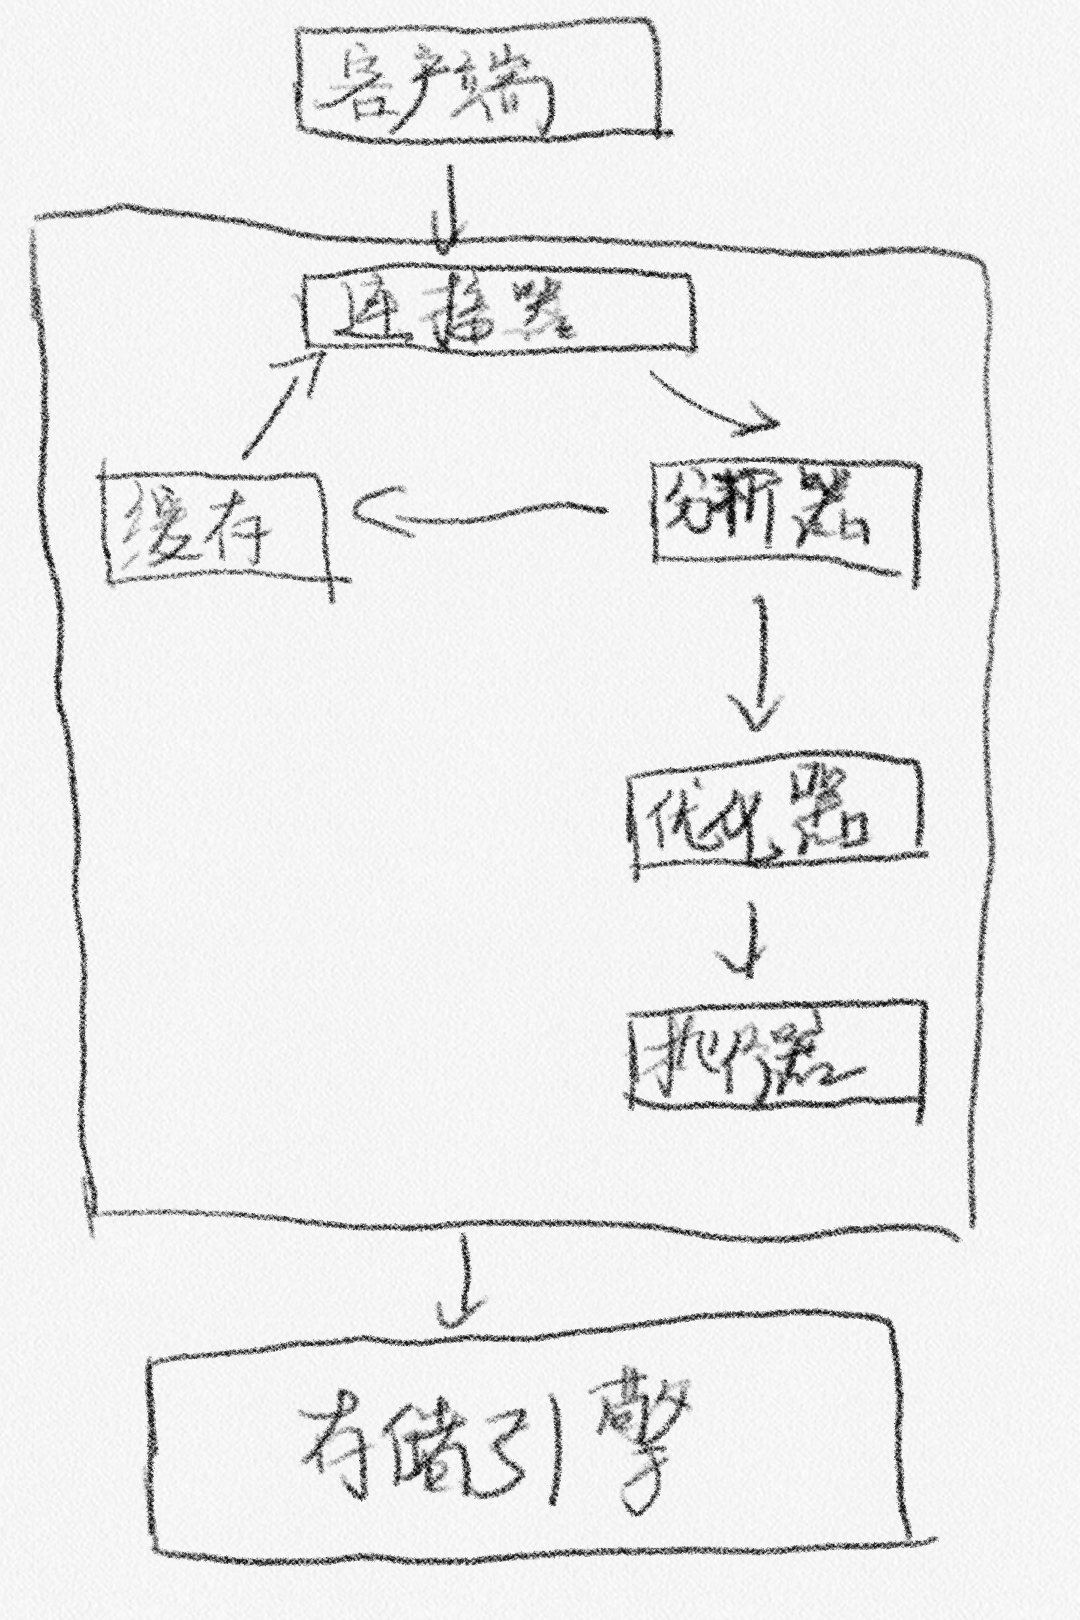 客户端
连接器
缓存
分析器
优化器
执行器
存储引擎